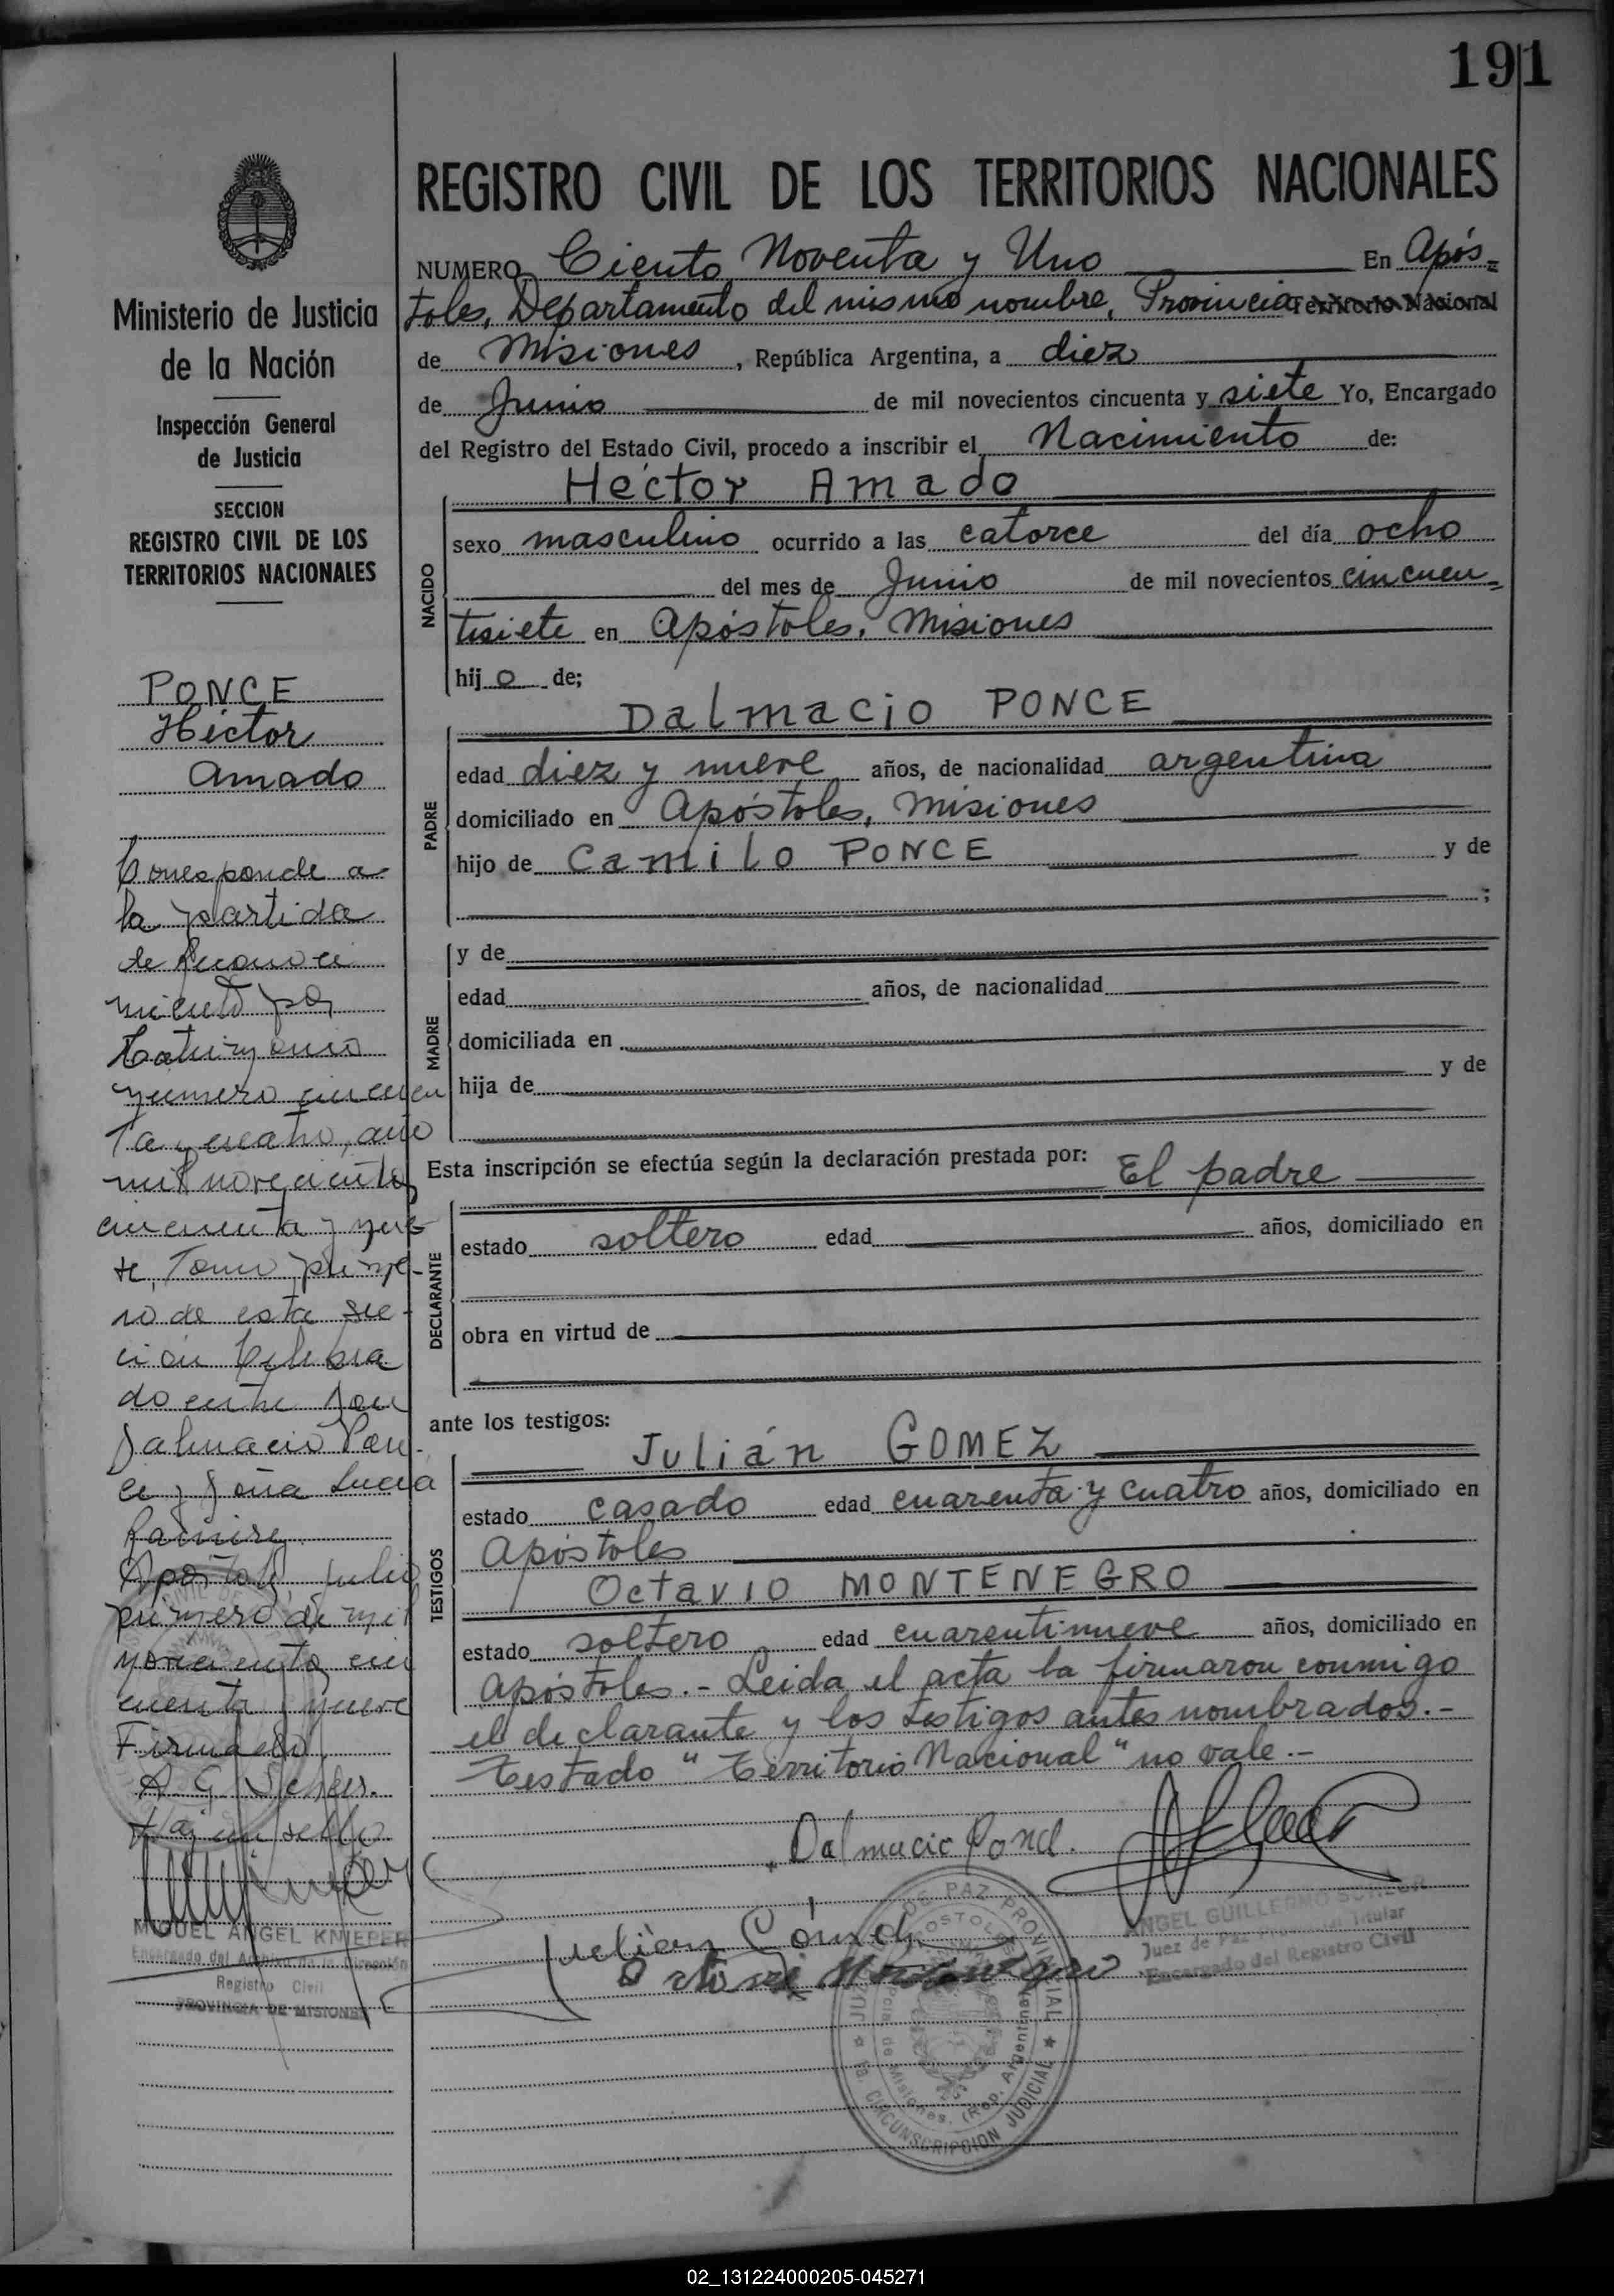 191
REGISTRO CIVIL DE LOS TERRITORIOS NACIONALES
NUMERO Ciento Noventa y Uno En Após=
toles, Departamento del mismo nombre, Provincia Territorio Nacional
de Misiones, República Argentina, a diez
de Junio de mil novecientos cincuenta y siete Yo, Encargado
del Registro del Estado Civil, procedo a inscribir el Nacimiento de:
Héctor Amado
NACIDO
sexo masculino ocurrido a las catorce del día ocho
del mes de Junio de mil novecientos cincuen=
tisiete en Apóstoles, Misiones
hijo de;
Dalmacio PONCE
PADRE
edad diez y nueve años, de nacionalidad argentina
domiciliado en Apóstoles, Misiones
hijo de Camilo PONCE y de
;
MADRE
y de
edad años, de nacionalidad
domiciliada en
hija de y de
Esta inscripción se efectúa según la declaración prestada por: El padre
DECLARANTE
estado soltero edad años, domiciliado en
obra en virtud de
ante los testigos:
Julián GOMEZ
TESTIGOS
estado casado edad cuarenta y cuatro años, domiciliado en
Apóstoles
Octavio MONTENEGRO
estado soltero edad cuarentinueve años, domiciliado en
Apóstoles.- Leida el acta la firmaron conmigo
el declarante y los testigos antes nombrados.-
Testado "Territorio Nacional" no vale.-
Dalmacio Ponce
Julian Gómez
Octavio Montenegro
ANGEL GUILLERMO
Juez de Paz Provincial Titular
Encargado del Registro Civil
JUZGADO DE PAZ PROVINCIAL
APOSTOLES
Pcia. de Misiones, (Rep. Argentina)
CIRCUNSCRIPCION JUDICIAL
Ministerio de Justicia
de la Nación
Inspección General
de Justicia
SECCION
REGISTRO CIVIL DE LOS
TERRITORIOS NACIONALES
PONCE
Héctor
Amado
Corresponde a
la partida
de Reconoci
miento por
Matrimonio
número cincuen
ta y cuatro, año
mil novecientos
cincuenta y nue
ve, Tomo prime-
ro de esta sec-
ción Celebra
do entre Don
Dalmacio Pon-
ce y Doña Lucia
Ramirez.
Apóstoles, julio
primero de mil
novecientos cin
cuenta y nueve
Firmado,
A. G.
Hay un sello
MIGUEL ANGEL KNIEPER
Encargado del Archivo de la Dirección
Registro Civil
PROVINCIA DE MISIONES
02_131224000205-045271